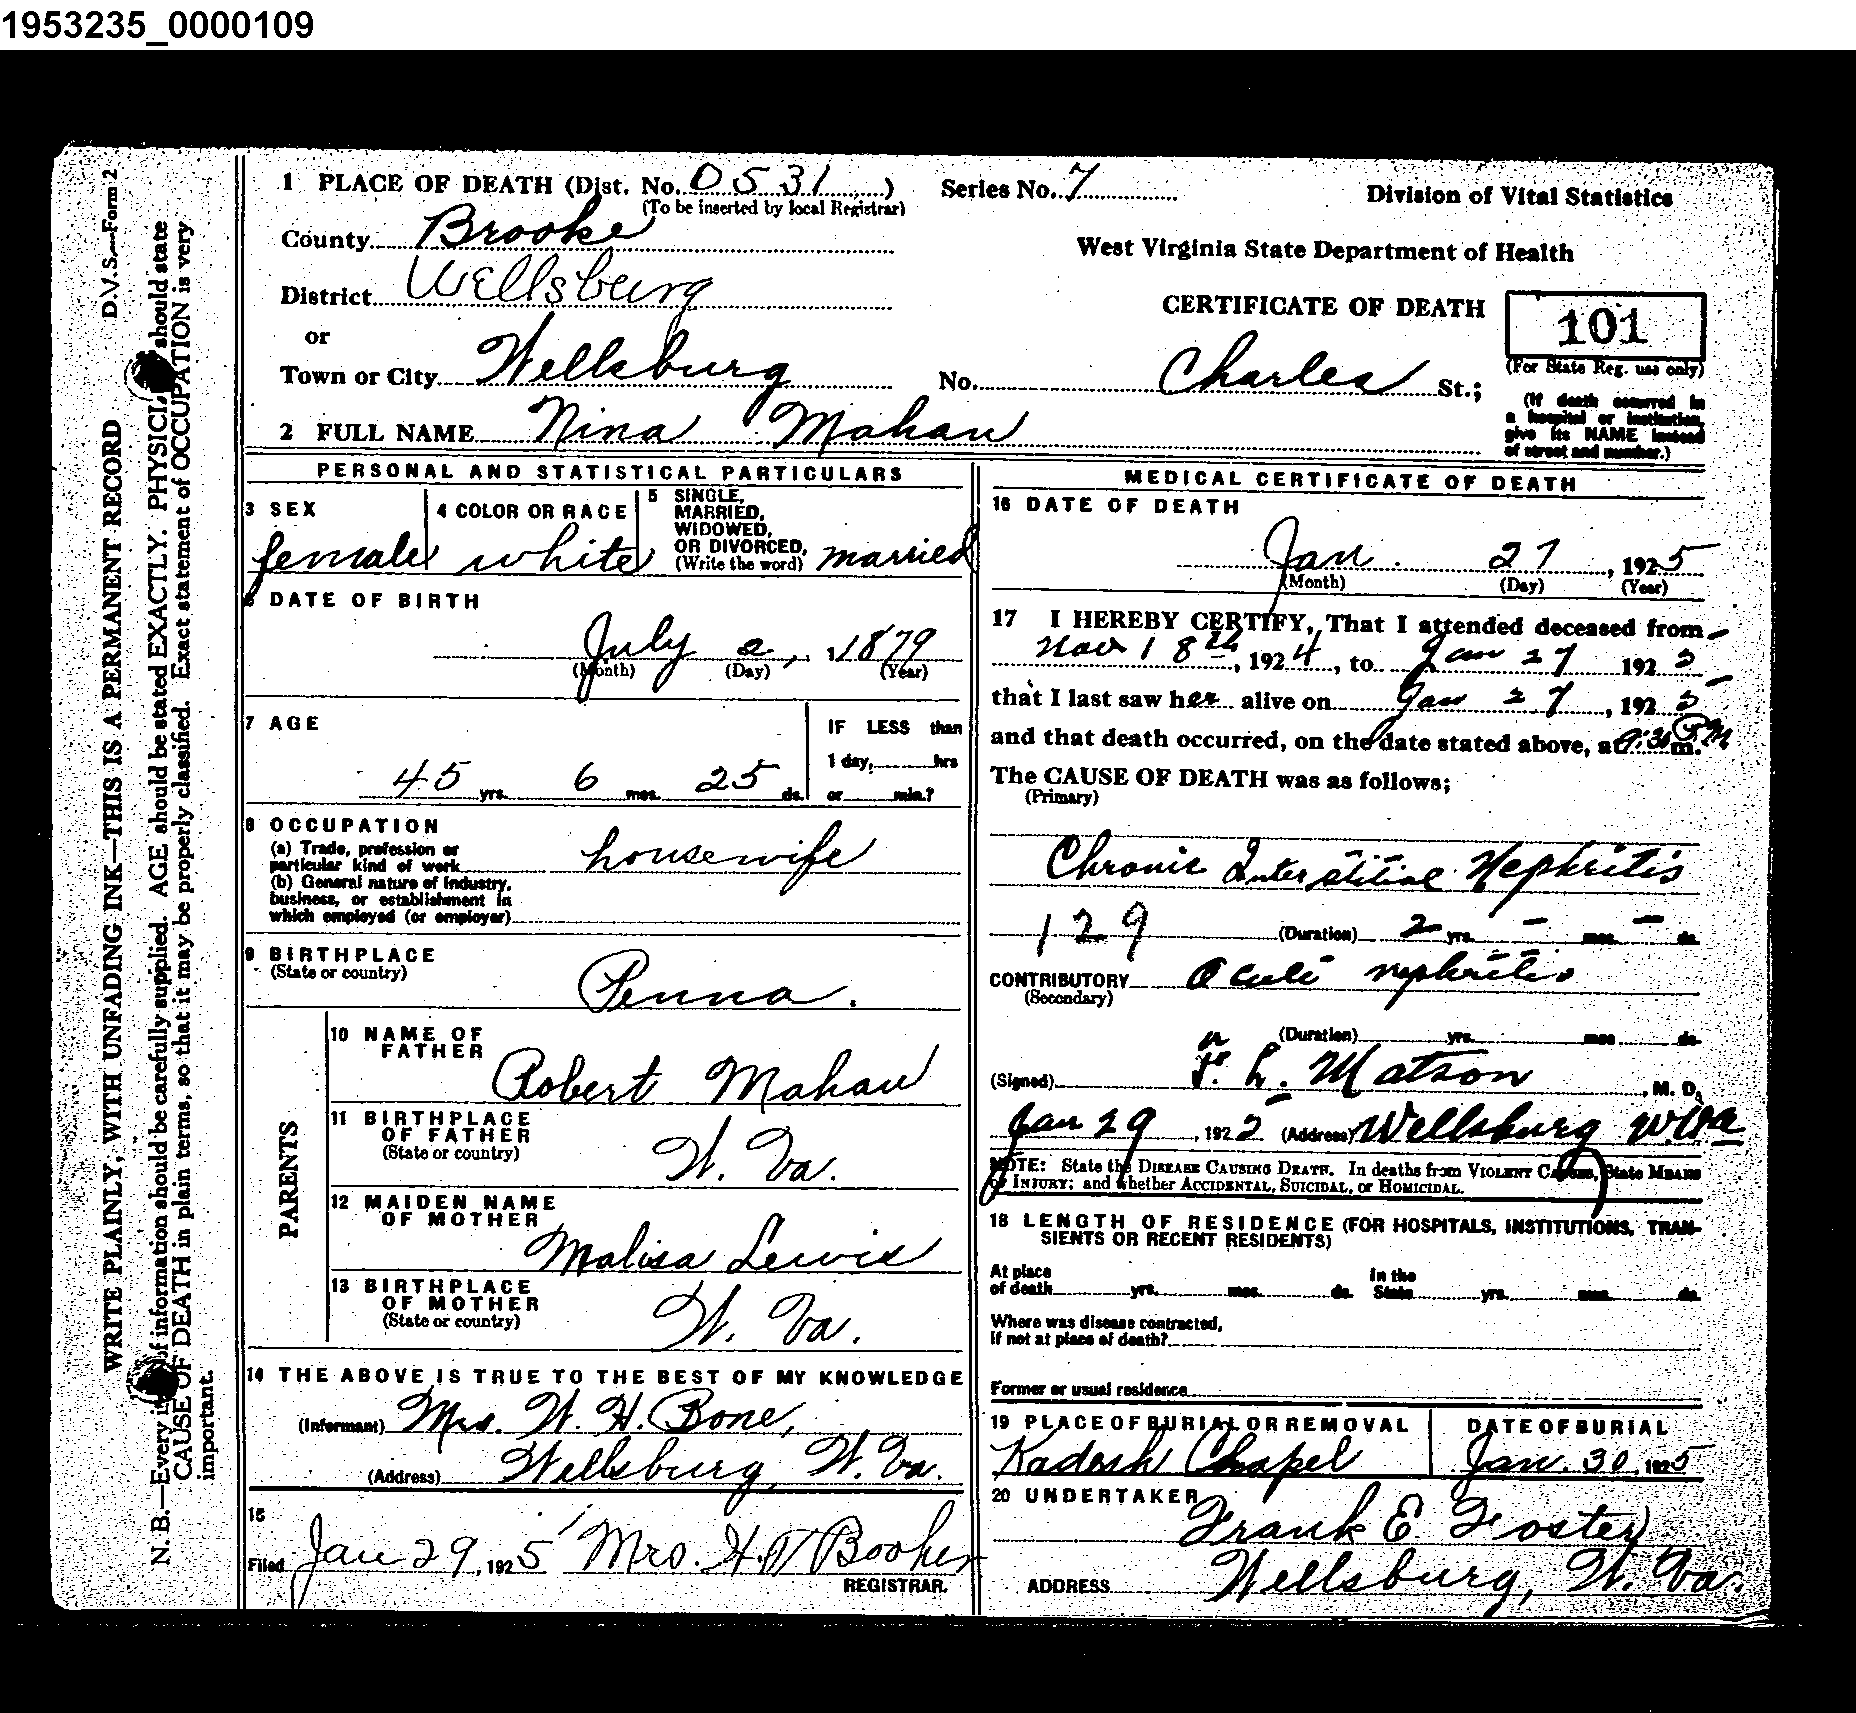 1953235_0000109
D.V.S.—Form 2
WRITE PLAINLY, WITH UNFADING INK—THIS IS A PERMANENT RECORD
N. B.—Every of information should be carefully supplied. AGE should be stated EXACTLY. PHYSICI should state
CAUSE OF DEATH in plain terms, so that it may be properly classified. Exact statement of OCCUPATION is very
important.
1 PLACE OF DEATH (Dist. No. 0531) Series No. 7
(To be inserted by local Registrar)
Division of Vital Statistics
County Brooke
West Virginia State Department of Health
District Wellsburg
CERTIFICATE OF DEATH
101
(For State Reg. use only)
or
Town or City Wellsburg No. Charles St.;
(If death occurred in
a hospital or institution,
give its NAME instead
of street and number.)
2 FULL NAME Nina Mahan
PERSONAL AND STATISTICAL PARTICULARS
3 SEX
female
4 COLOR OR RACE
white
5 SINGLE,
MARRIED,
WIDOWED,
OR DIVORCED,
(Write the word) married
6 DATE OF BIRTH
July 2, 1879
(Month) (Day) (Year)
7 AGE
45 yrs. 6 mos. 25 ds.
IF LESS than
1 day, hrs
or min.?
8 OCCUPATION
(a) Trade, profession or
particular kind of work housewife
(b) General nature of Industry,
business, or establishment in
which employed (or employer)
9 BIRTHPLACE
(State or country)
Penna.
PARENTS
10 NAME OF
FATHER
Robert Mahan
11 BIRTHPLACE
OF FATHER
(State or country) W. Va.
12 MAIDEN NAME
OF MOTHER
Malisa Lewis
13 BIRTHPLACE
OF MOTHER
(State or country) W. Va.
14 THE ABOVE IS TRUE TO THE BEST OF MY KNOWLEDGE
(Informant) Mrs. W. H. Bone,
(Address) Wellsburg, W. Va.
15
Filed Jan 29, 1925 Mrs. H. T Booher
REGISTRAR.
MEDICAL CERTIFICATE OF DEATH
16 DATE OF DEATH
Jan. 27, 1925
(Month) (Day) (Year)
17 I HEREBY CERTIFY, That I attended deceased from
Nov 18th, 1924, to Jan 27 1925
that I last saw her alive on Jan 27, 1925
and that death occurred, on the date stated above, at 9:30 P.M m.
The CAUSE OF DEATH was as follows;
(Primary)
Chronic Interstitial Nephritis
129 (Duration) 2 yrs. – mos. – ds.
CONTRIBUTORY Acute nephritis
(Secondary)
(Duration) yrs. mos. ds.
(Signed) F. L. Matson, M. D.
Jan 29, 1925 (Address) Wellsburg W Va
NOTE: State the DISEASE CAUSING DEATH. In deaths from VIOLENT CAUSES, State MEANS
OF INJURY; and whether ACCIDENTAL, SUICIDAL, or HOMICIDAL.
18 LENGTH OF RESIDENCE (FOR HOSPITALS, INSTITUTIONS, TRAN-
SIENTS OR RECENT RESIDENTS)
At place
of death yrs. mos. ds.
In the
State yrs. mos. ds.
Where was disease contracted,
if not at place of death?
Former or usual residence
19 PLACE OF BURIAL OR REMOVAL
Kadesh Chapel
DATE OF BURIAL
Jan. 30, 1925
20 UNDERTAKER
Frank E. Foster
ADDRESS Wellsburg, W. Va.